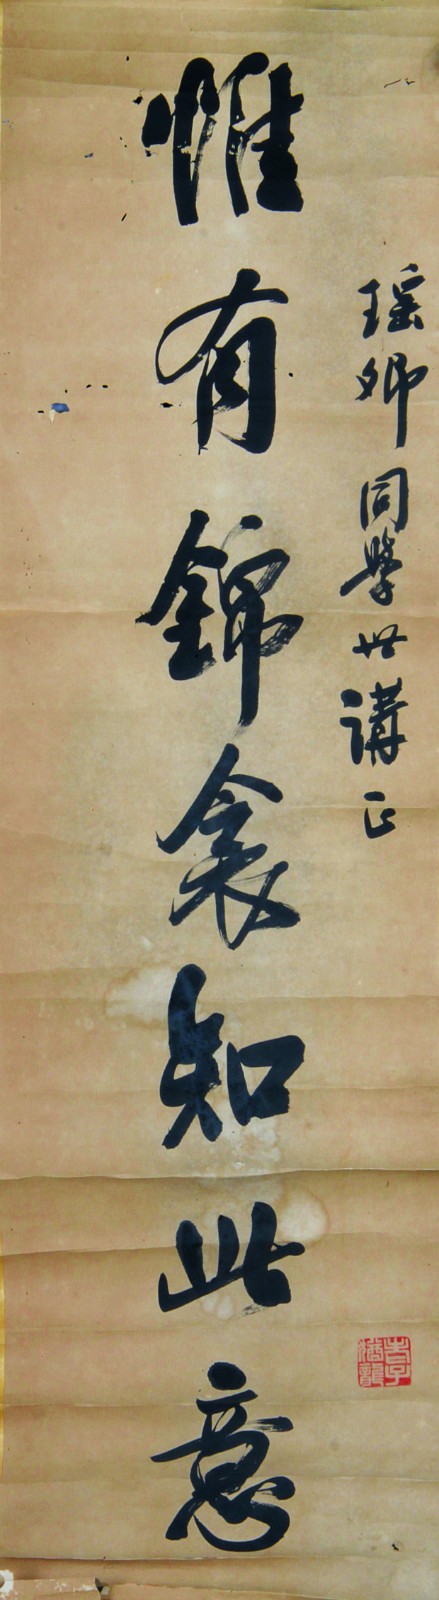 瑶卿同學世講正
惟有錦衾知此意